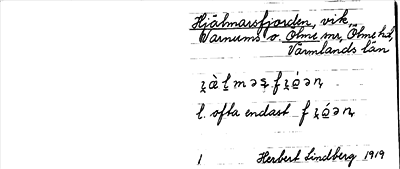 Hjälmarsfjorden, vik,
Varnums o. Ölme snr, Ölme hd,
Värmlands län
l. ofta endast
1 Herbert Lindberg 1919